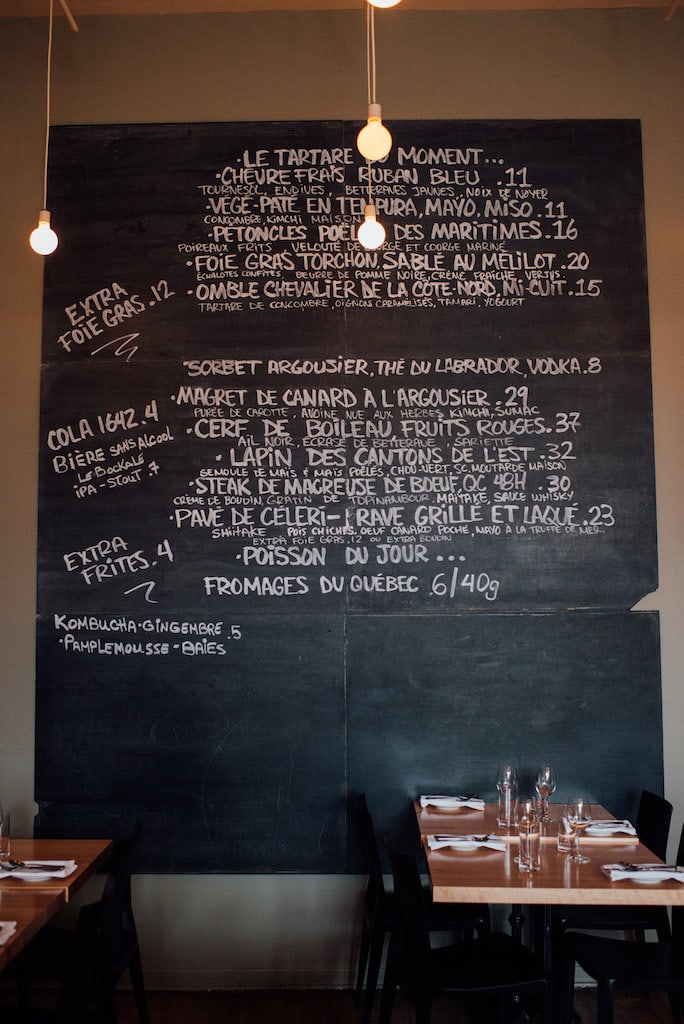 ·LE TARTARE MOMENT...
·CHÈVRE FRAIS RUBAN BLEU .11
TOURNESOL, ENDIVES, BETTERAVES JAUNES, NOIX DE NOYER
·VÉGÉ-PATÉ EN TEMPURA, MAYO, MISO .11
CONCOMBRE, KIMCHI MAISON
·PETONCLES DES MARITIMES .16
POIREAUX FRITS VELOUTÉ DE ET COURGE MARINÉ
·FOIE GRAS TORCHON, SABLÉ AU MÉLILOT .20
ÉCHALOTES CONFITES, BEURRE DE POMME NOIRE, CRÈME FRAÎCHE, VERJUS
·OMBLE CHEVALIER DE LA CÔTE-NORD, MI-CUIT .15
TARTARE DE CONCOMBRE, OIGNONS CARAMÉLISÉS, TAMARI, YOGOURT
EXTRA
FOIE GRAS .12
SORBET ARGOUSIER, THÉ DU LABRADOR, VODKA .8
·MAGRET DE CANARD À L'ARGOUSIER .29
PURÉE DE CAROTTE, AVOINE NUE AUX HERBES KIMCHI, SUMAC
·CERF DE BOILEAU FRUITS ROUGES .37
AIL NOIR, ÉCRASÉ DE BETTERAVE, SARIETTE
·LAPIN DES CANTONS DE L'EST .32
SEMOULE DE MAÏS & MAÏS POÊLÉS, CHOU-VERT, SC. MOUTARDE MAISON
·STEAK DE MAGREUSE DE BOEUF, QC 48H .30
CRÈME DE BOUDIN, GRATIN DE TOPINAMBOUR, MAÏTAKE, SAUCE WHISKY
·PAVÉ DE CÉLERI-RAVE GRILLÉ ET LAQUÉ .23
SHIITAKE POIS CHICHES, OEUF CANARD POCHÉ, MAYO À LA TRUFFE DE MER
EXTRA FOIE GRAS .12 OU EXTRA BOUDIN
·POISSON DU JOUR...
FROMAGES DU QUÉBEC .6/40g
COLA 1642 .4
BIÈRE SANS ALCOOL
LE BOCKALE
IPA - STOUT .7
EXTRA
FRITES .4
KOMBUCHA·GINGEMBRE .5
·PAMPLEMOUSSE-BAIES